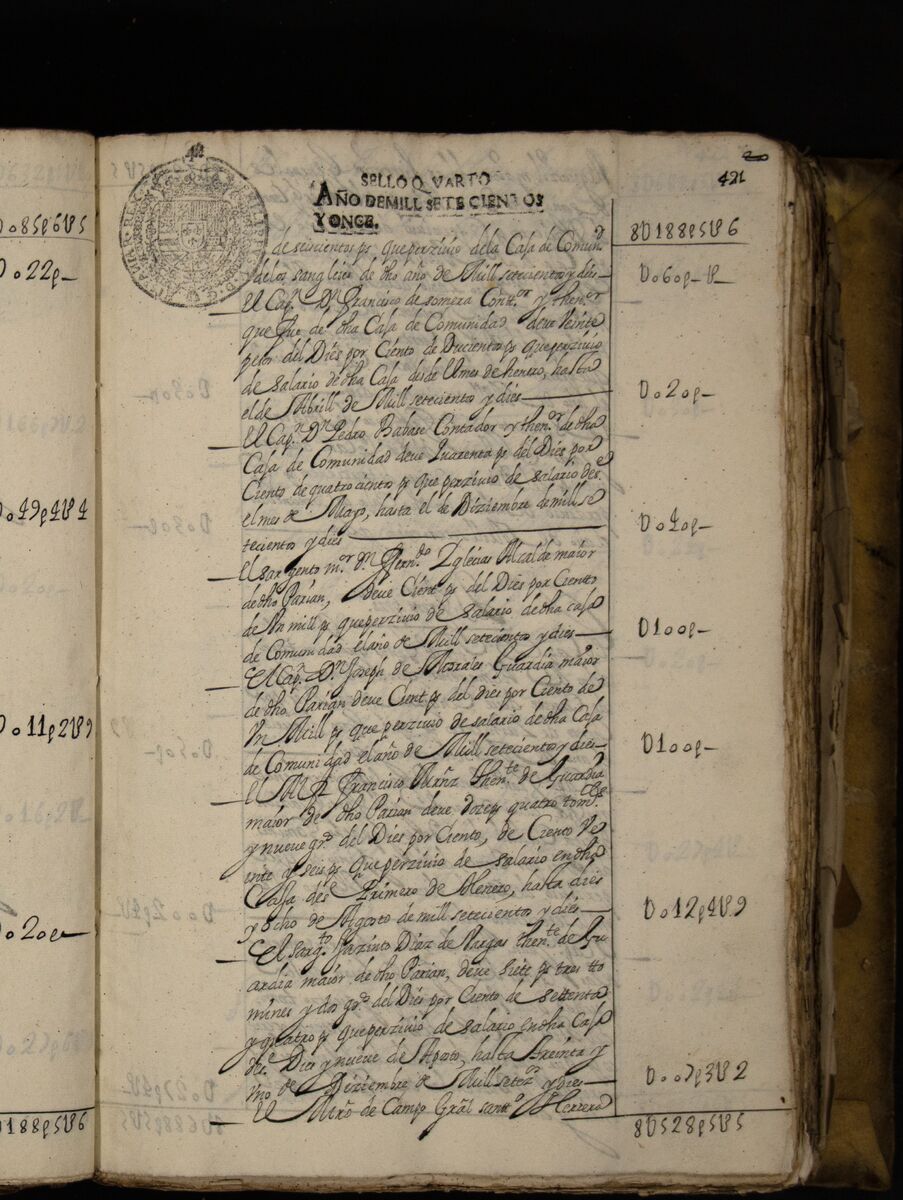 421
SELLO QVARTO
AÑO DE MILL SETECIENTOS
Y ONCE.
8U188p5U6
de seiscientos ps que perzivio de la Casa de Comund
y de los sangleies de dho año de Mill setecientos y dies— U060p-U-
El Capn Dn Francisco de somera Contor y thenor
que fue de dha Casa de Comunidad deve Veinte
pesos del Dies por Ciento de Ducientos ps que perzivio
de salario de dha Casa desde el mes de henero, hasta
el de Abrill de Mill setecientos y dies— U020p-
El Capn Dn Pedro Babase Contador y thenor de dha
Casa de Comunidad deve Quarenta ps del Dies por
Ciento de quatrocientos ps que perzivio de salario desde
el mes de Mayo, hasta el de Diziembre de mill se
tecientos y dies— U040p-
El sargento mor Dn Ferndo Yglecias Alcalde maior
de dho Parian, deve Cient ps del Dies por Ciento
de Vn mill ps que perzivio de salario de dha casa
de Comunidad el año de Mill setecientos y dies— U100p-
El Capn Dn Joseph de Morales Guardia maior
de dho Parian deve Cient ps del dies por Ciento de
Vn Mill ps que perzivio de salario de dha Casa
de Comunidad el año de Mill setecientos y dies— U100p-
El Francisco thente de Guardia
maior de dho Parian deve doze ps quatro toms
y nueve gros del Dies por Ciento, de Ciento Ve
inte y seis ps que perzivio de salario en dha
Casa desde Primero de Henero, hasta dies
y Ocho de Agosto de mill setecientos y dies— U012p4U9
El sargto Jazinto Diaz de Vargas thente de Gu
ardia maior de dho Parian, deve siete ps tres tto
mines y dos gros del Dies por Ciento de settenta
y quatro ps que perzivio de salario en dha Casa
desde Dies y nueve de Agosto, hasta treinta y
vno de Diziembre de Mill setezos y dies— U007p3U2
El Mro de Campo Gral Herrero
8U528p5U5
U085p6U5
U022p-
U049p4U4
U011p2U9
U020p-
188p5U6